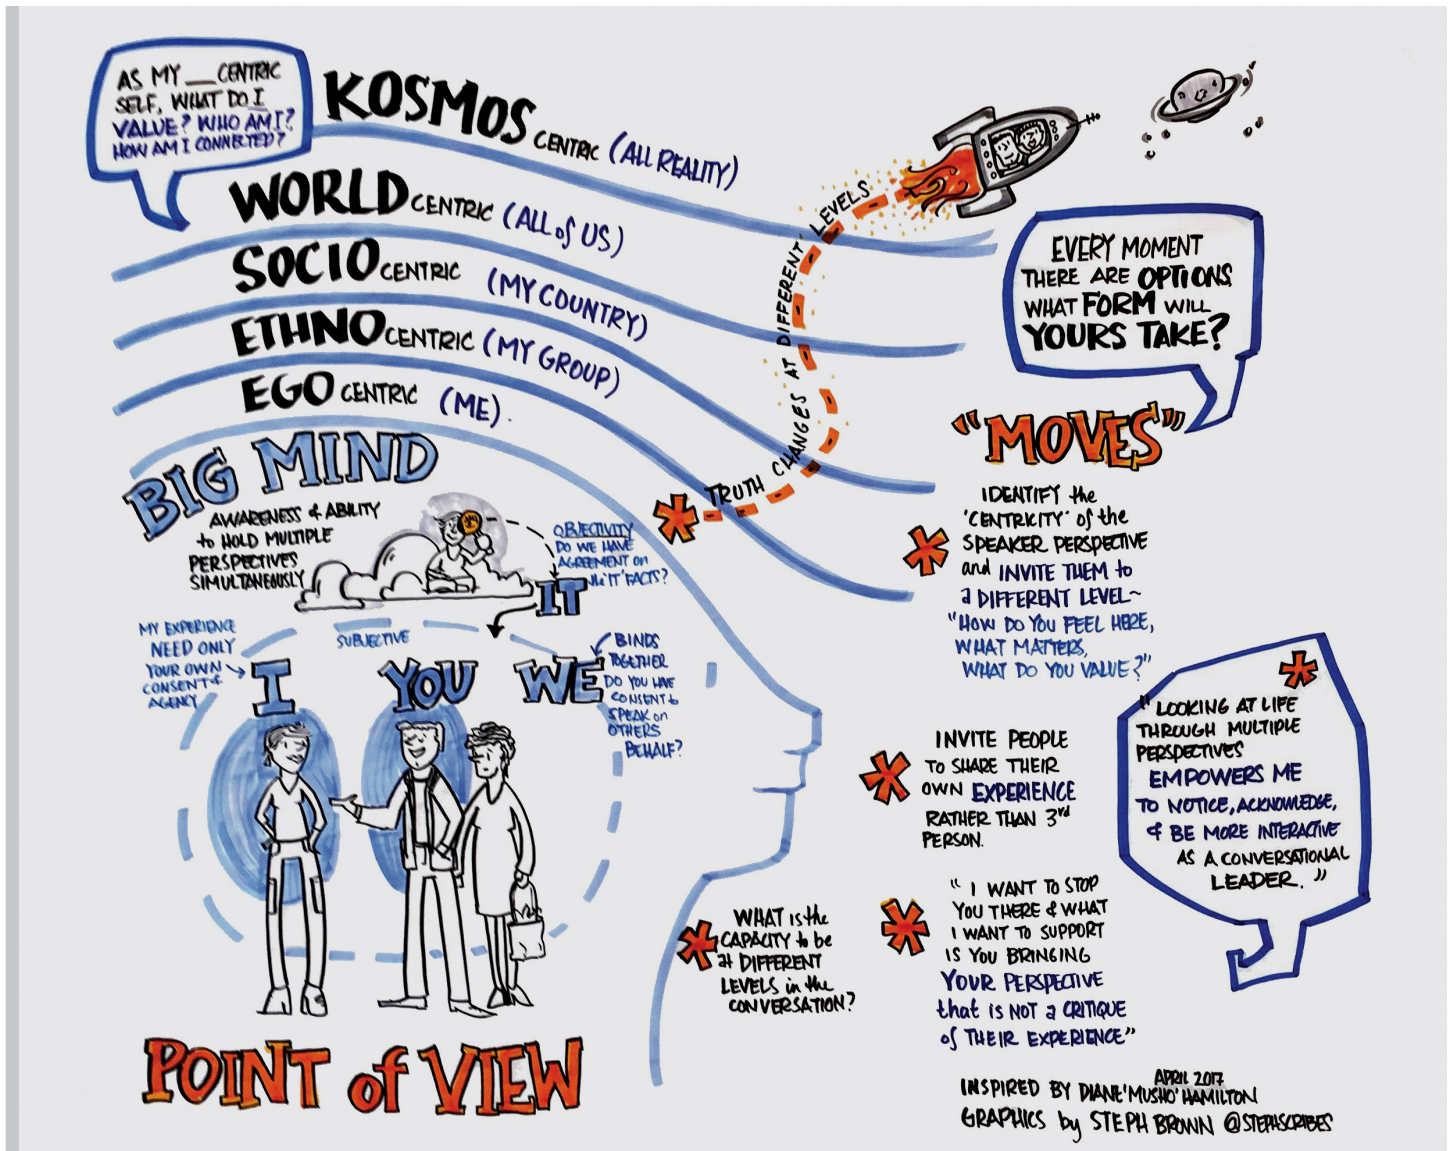 AS MY __ CENTRIC
SELF, WHAT DO I
VALUE? WHO AM I?
HOW AM I CONNECTED?
KOSMOS CENTRIC (ALL REALITY)
WORLD CENTRIC (ALL of US)
SOCIO CENTRIC (MY COUNTRY)
ETHNO CENTRIC (MY GROUP)
EGO CENTRIC (ME).
BIG MIND
AWARENESS & ABILITY
to HOLD MULTIPLE
PERSPECTIVES
SIMULTANEOUSLY
OBJECTIVITY
DO WE HAVE
AGREEMENT on
the 'IT' FACTS?
IT
SUBJECTIVE
MY EXPERIENCE
NEED ONLY
YOUR OWN
CONSENT &
AGENCY
I
YOU
WE
BINDS
TOGETHER
DO YOU HAVE
CONSENT to
SPEAK on
OTHERS
BEHALF?
POINT of VIEW
TRUTH CHANGES AT DIFFERENT LEVELS
EVERY MOMENT
THERE ARE OPTIONS
WHAT FORM WILL
YOURS TAKE?
"MOVES"
IDENTIFY the
'CENTRICITY' of the
SPEAKER PERSPECTIVE
and INVITE THEM to
a DIFFERENT LEVEL~
"HOW DO YOU FEEL HERE,
WHAT MATTERS,
WHAT DO YOU VALUE?"
INVITE PEOPLE
TO SHARE THEIR
OWN EXPERIENCE
RATHER THAN 3rd
PERSON.
"I WANT TO STOP
YOU THERE & WHAT
I WANT TO SUPPORT
IS YOU BRINGING
YOUR PERSPECTIVE
that is NOT a CRITIQUE
of THEIR EXPERIENCE"
WHAT is the
CAPACITY to be
at DIFFERENT
LEVELS in the
CONVERSATION?
"LOOKING AT LIFE
THROUGH MULTIPLE
PERSPECTIVES
EMPOWERS ME
TO NOTICE, ACKNOWLEDGE,
& BE MORE INTERACTIVE
AS A CONVERSATIONAL
LEADER."
APRIL 2017
INSPIRED BY DIANE 'MUSHO' HAMILTON
GRAPHICS by STEPH BROWN @STEPHSCRIBES